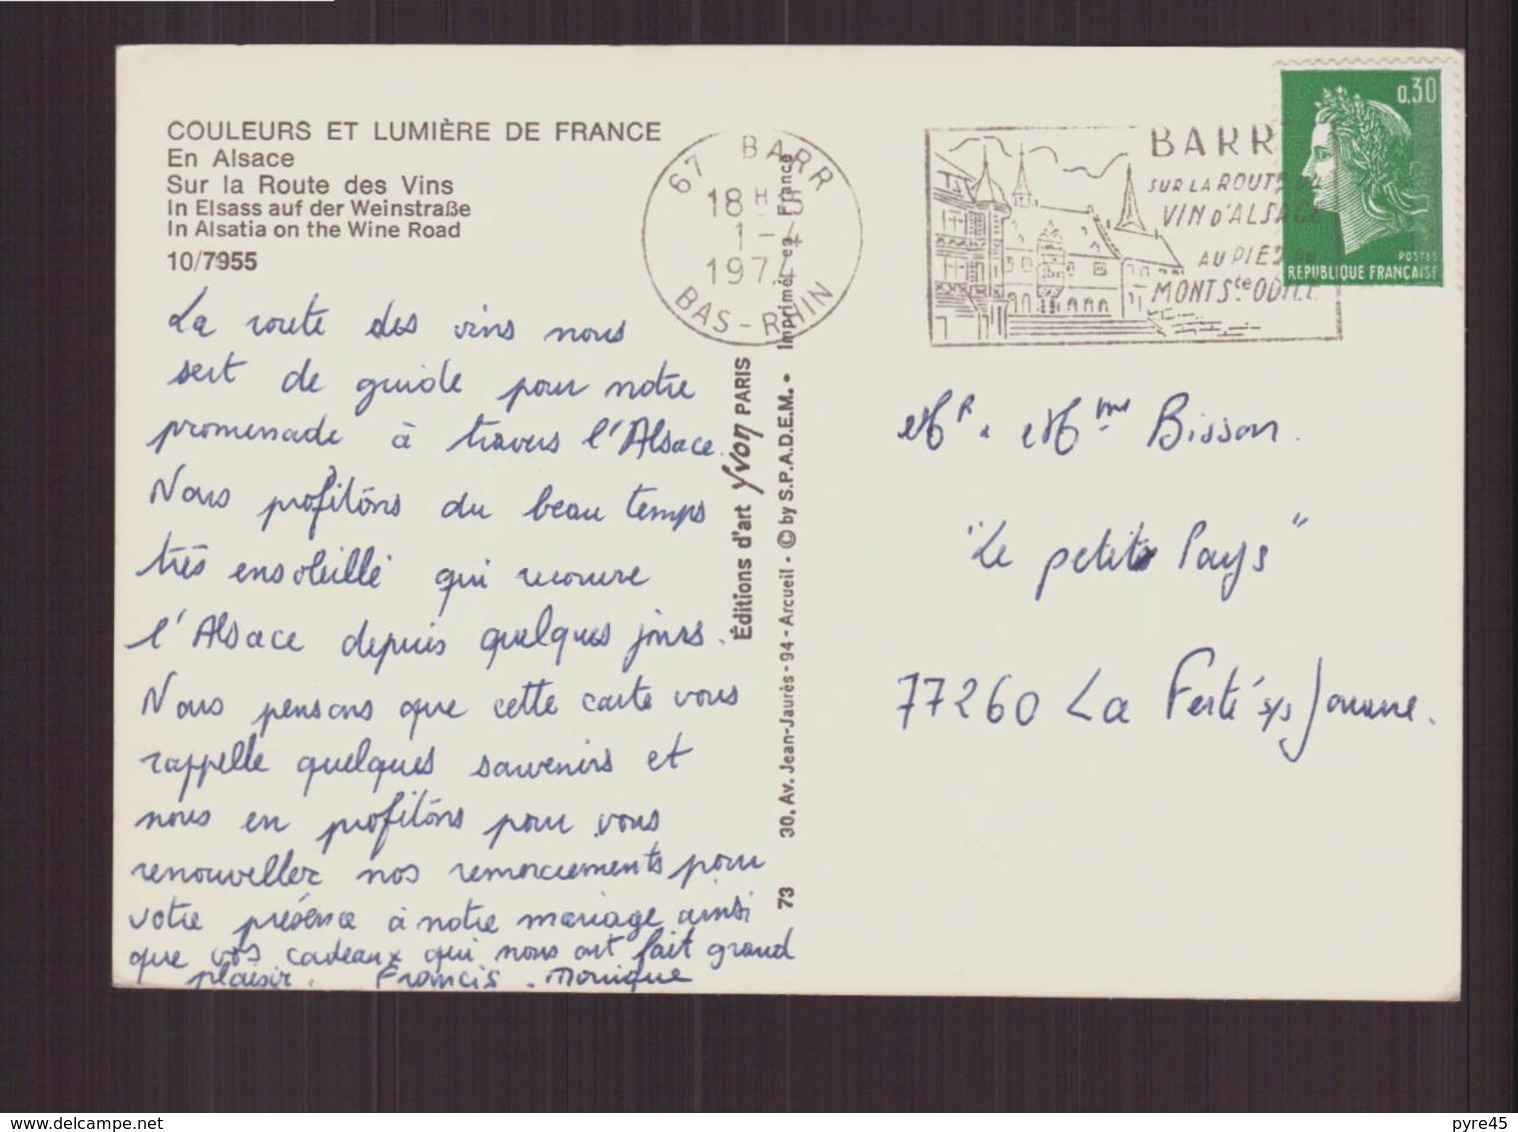 COULEURS ET LUMIÈRE DE FRANCE
En Alsace
Sur la Route des Vins
In Elsass auf der Weinstraße
In Alsatia on the Wine Road
10/7955
La route des vins nous
sert de guide pour notre
promenade à travers l'Alsace.
Nous profitons du beau temps
très ensoleillé qui recouvre
l'Alsace depuis quelques jours.
Nous pensons que cette carte vous
rappelle quelques souvenirs et
nous en profitons pour vous
renouveller nos remerciements pour
votre présence à notre mariage ainsi
que vos cadeaux qui nous ont fait grand
plaisir. Francis - Monique
67 BARR
18 H
1-4
1974
BAS-RHIN
Éditions d'art Yvon PARIS
73 30, Av. Jean-Jaurès - 94 - Arcueil • © by S.P.A.D.E.M. • Imprimé en France
BARR
SUR LA ROUTE DU
VIN D'ALSACE
AU PIED DU
MONT Ste ODILE
0,30
POSTES
REPUBLIQUE FRANÇAISE
Mr & Mme Bisson.
"Le petit Pays"
77260 La Ferté s/s Jouarre.
pyre45